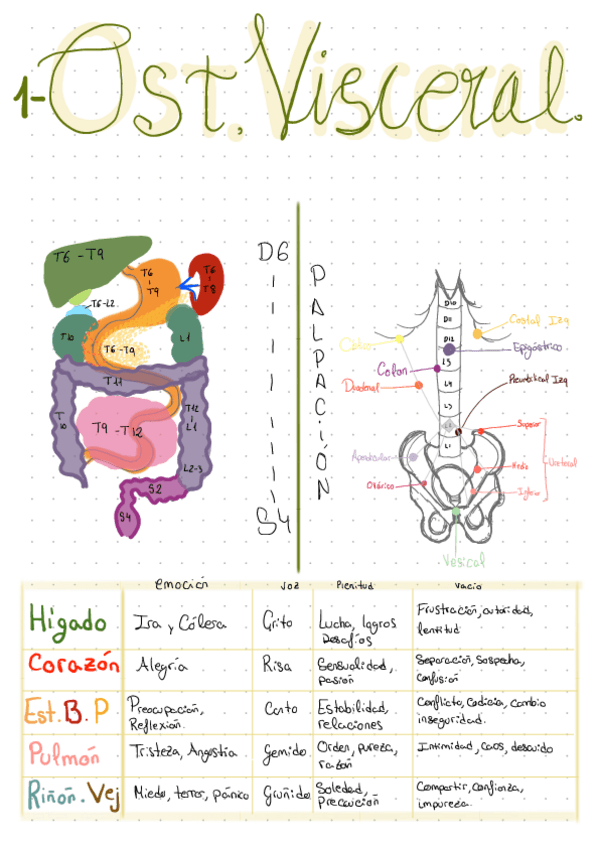 1- Ost. Visceral.
T6 - T9
T6
T9
T6
T8
T6-L2
T10
T6-T9
L1
T11
T
10
T9 - T12
T12
L1
L2-3
S2
S4
D6
S4
PALPACIÓN
D10
D11
D12
L5
L4
L3
L1
Costal Izq
Epigástrico
Colon
Duodenal
Superior
Medio
Ureteral
Inferior
Apendicular
Ovárico
Vesical
Emoción Voz Plenitud Vacío
Hígado Ira y Cólera Grito Lucha, logros Frustración, autoridad,
Desafíos lentitud
Corazón Alegría Risa Sensualidad, Separación, Sospecha,
pasión confusión
Est. B. P Preocupación, Canto Estabilidad, Conflicto, Codicia, cambio
Reflexión. relaciones inseguridad.
Pulmón Tristeza, Angustia Gemido Orden, pureza, Intimidad, Caos, descuido
razón
Riñón. Vej Miedo, terror, pánico Gruñido Soledad, Compartir, Confianza,
Precaución impureza.